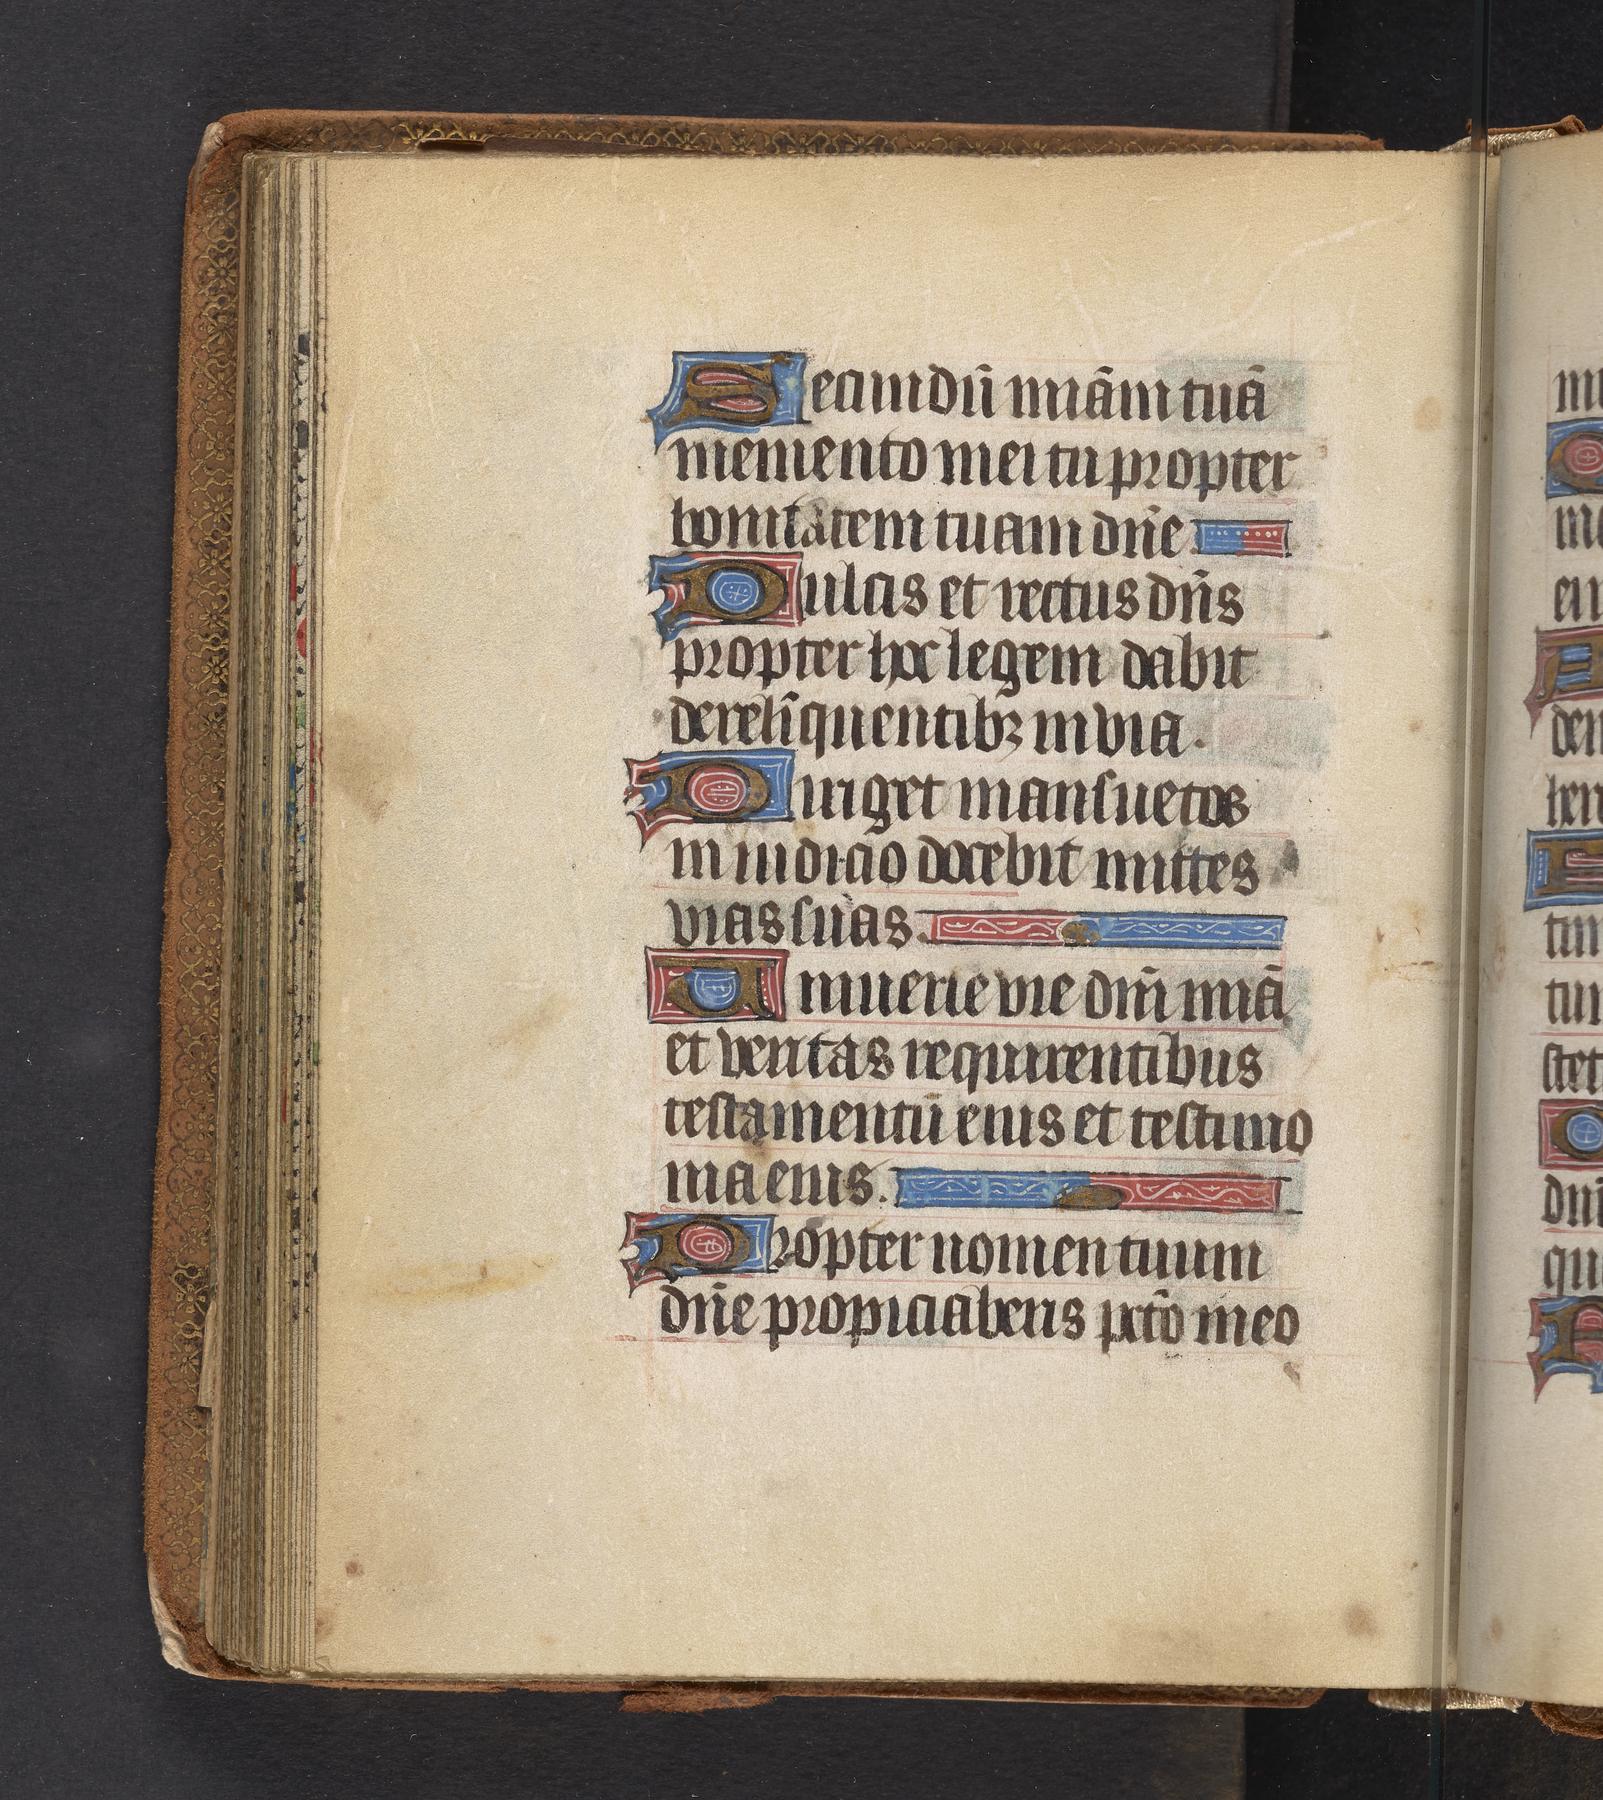 Secundū miām tuā
memento mei tu propter
bonitatem tuam dn̄e.
Dulcis et rectus dn̄s
propter hoc legem dabit
derelīquentibꝫ in via.
Diriget mansuetos
in iudicio docebit mittes
vias suas.
Uniuerse vie dn̄i miā
et veritas requirentibus
testamentū eius et testimo
nia eius.
Propter nomen tuum
dn̄e propiciaberis pctō meo